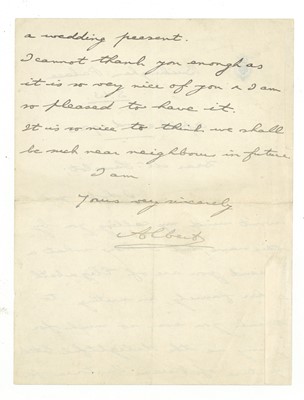 a wedding present.
I cannot thank you enough as
it is so very nice of you & I am
so pleased to have it.
It is so nice to think we shall
be such near neighbours in future
I am
Yours very sincerely
Albert